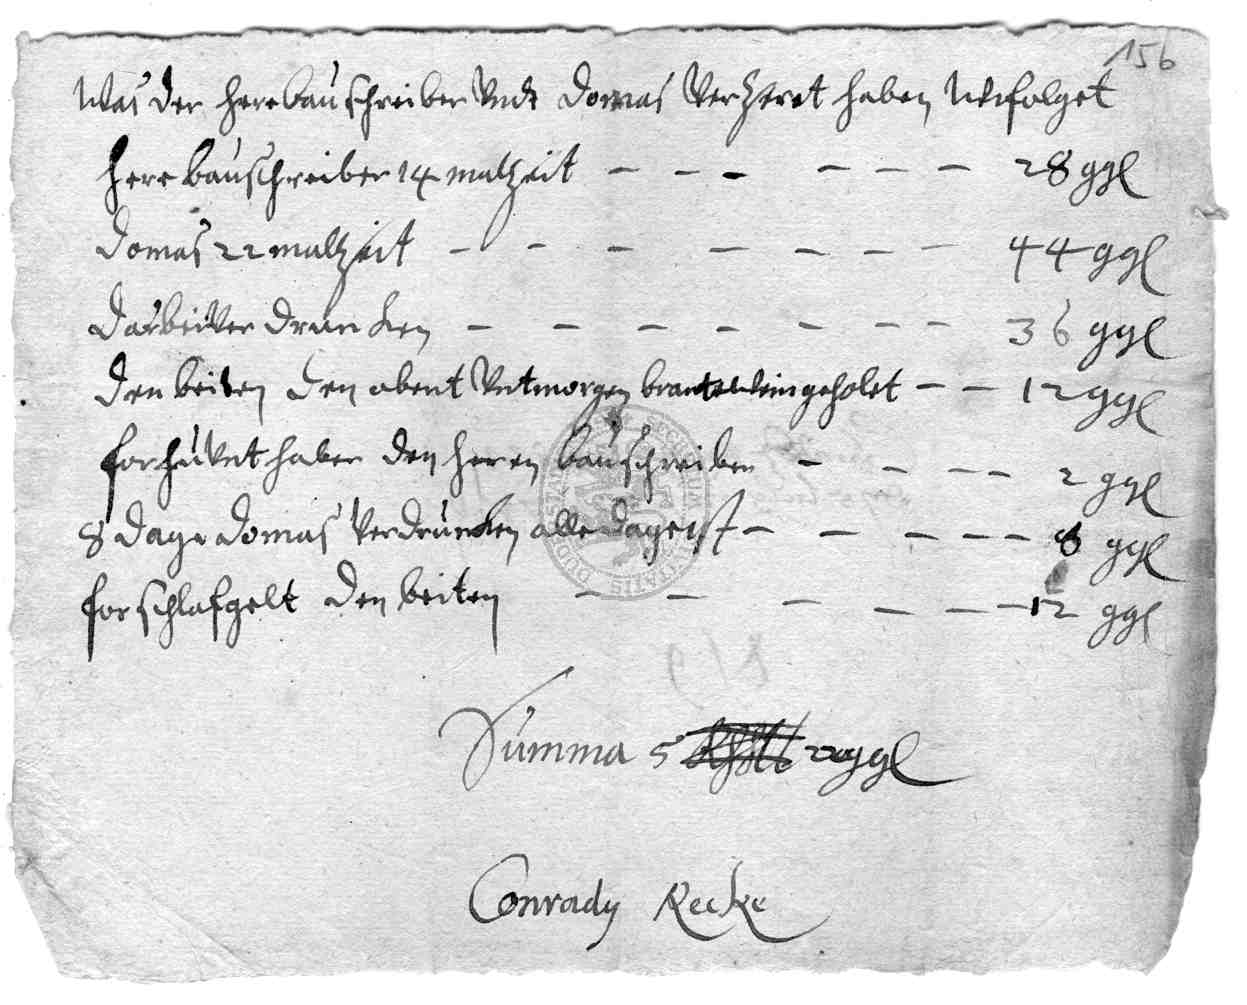 156
Was der Herr bauschreiber Undt Domas Verzeret haben Wiefolget
Herr bauschreiber 14 maltzeit — — — — — — 28 ggl
Domas 22 maltzeit — — — — — — — 44 ggl
Darbei Ver druncken — — — — — — — 36 ggl
Den beiten den abent Unt morgen brantewein geholet — — 12 ggl
for hauet haber den Heren bauschreiber — — — — 2 ggl
8 Dage Domas Verdruncken alle Dage 1 — — — — — 8 ggl
for schlafgelt den beiten — — — — — — 12 ggl
Summa 5 ggl
Conrady Recke